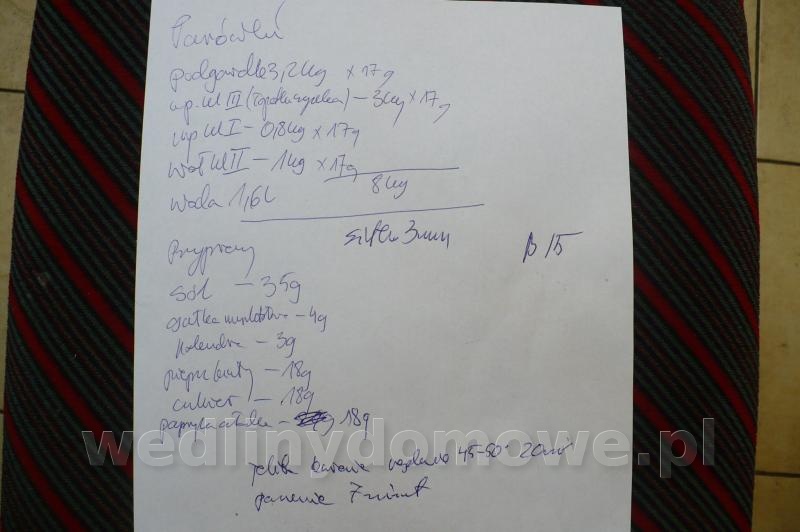 Parówki
podgardle 3,2kg x 17g
wp. kl III (łopatka, golonka) – 3kg x 17g
wp kl I – 0,8kg x 17g
woł kl II – 1kg x 17g
8kg
woda 1,6l
sitko 3mm
Przyprawy
sól – 35g
gałka muszkatołowa – 4g
kolendra – 3g
pieprz biały – 18g
cukier – 18g
papryka słodka – 18g
wedlinydomowe.pl
jelita baranie wędzenie 45-50° 20min
parzenie 7 minut